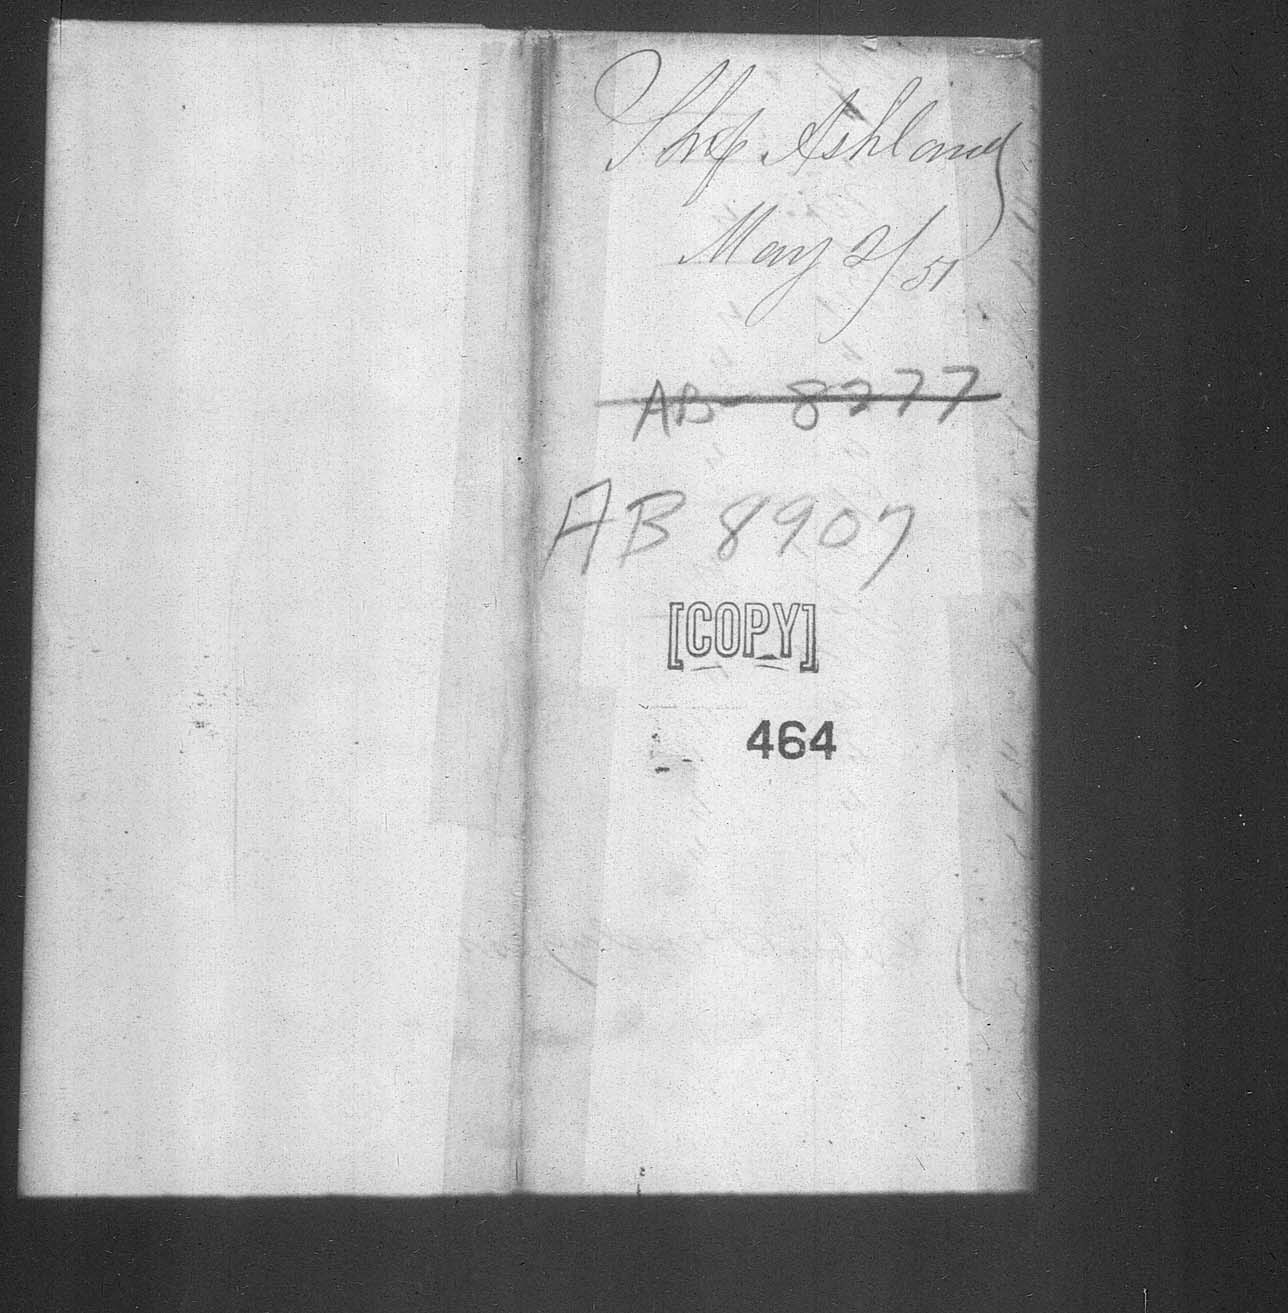 Ship Ashland
May 2/51
AB- 8277
AB 8907
[COPY]
464